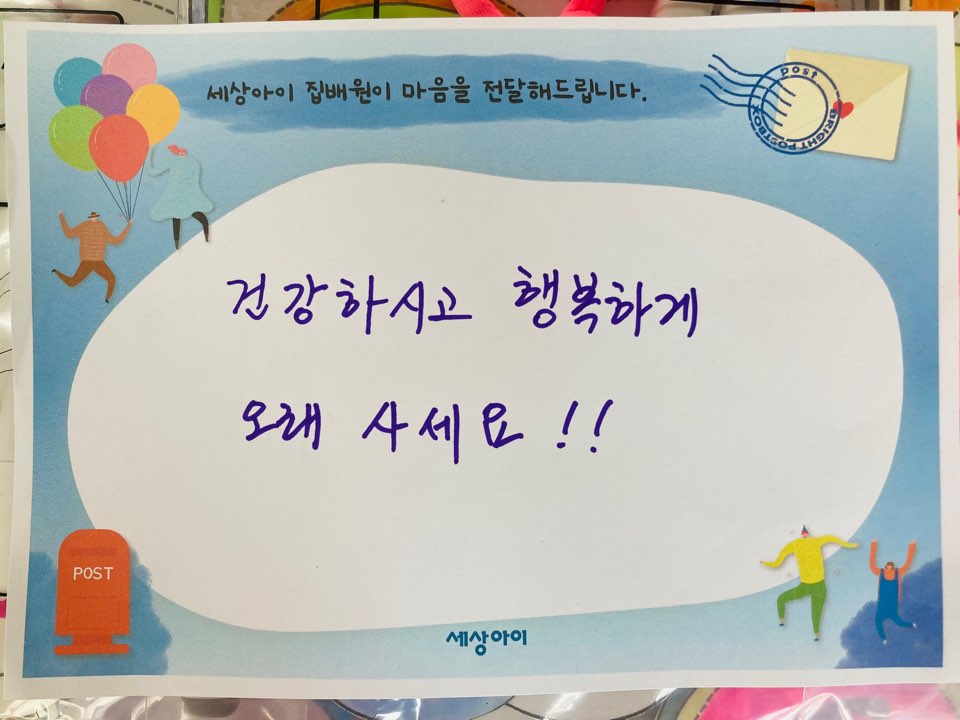 세상아이 집배원이 마음을 전달해드립니다.
post
BRIGHT POSTBOX
건강하시고 행복하게
오래 사세요!!
POST
세상아이